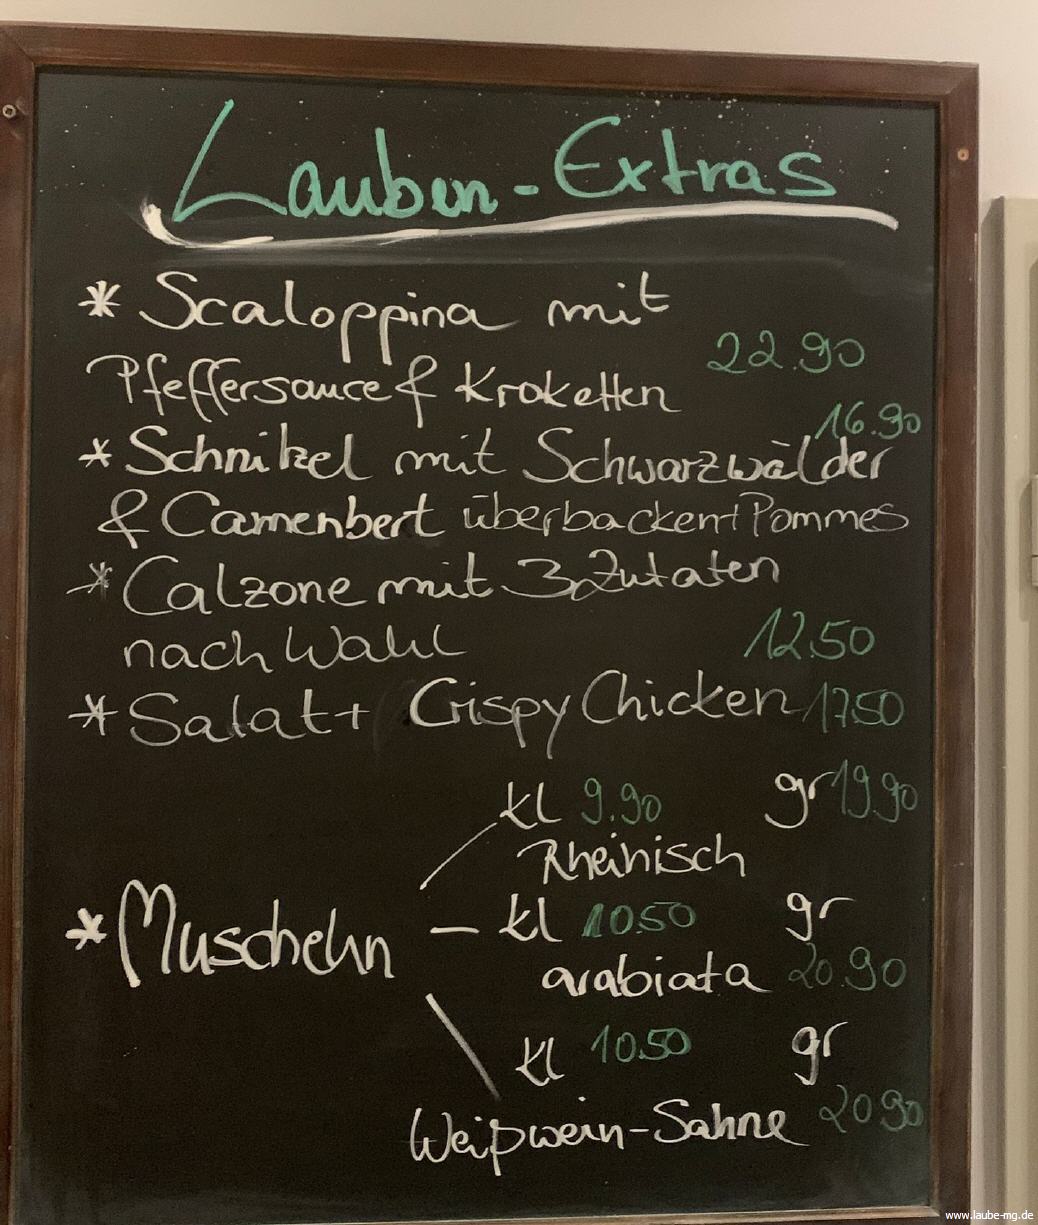 Lauben-Extras
* Scaloppina mit
Pfeffersauce & Kroketten 22.90
* Schnitzel mit Schwarzwälder 16.90
& Camenbert überbacken + Pommes
* Calzone mit 3 Zutaten
nach Wahl 12.50
* Salat + Crispy Chicken 17.50
kl 9.90 gr 19.90
Rheinisch
* Muscheln
kl 10.50 gr
arabiata 20.90
kl 10.50 gr
Weißwein-Sahne 20.90
www.laube-mg.de